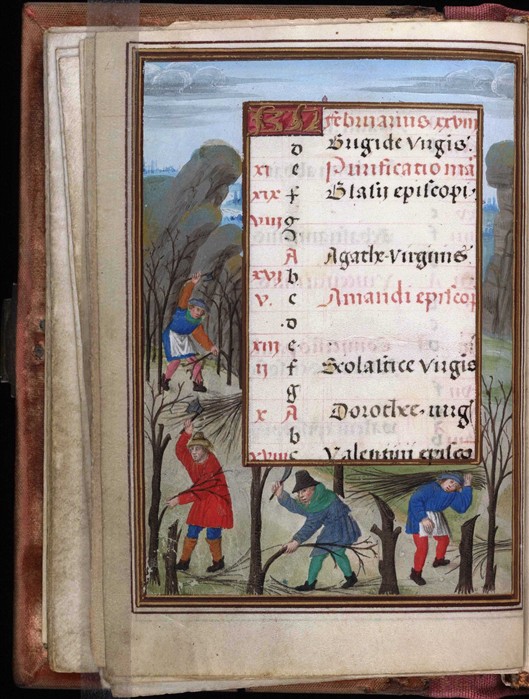 KL februarius xxviii
d Brigide virgis.
xi e Purificatio ma
xix f Blasii episcopi.
viii g
A Agathe virginis
xvi b
v. c Amandi episcop
.d
xiii e
ii f Scolastice virgis
g
x A Dorothee. virg
b
xviii c Valentini episco